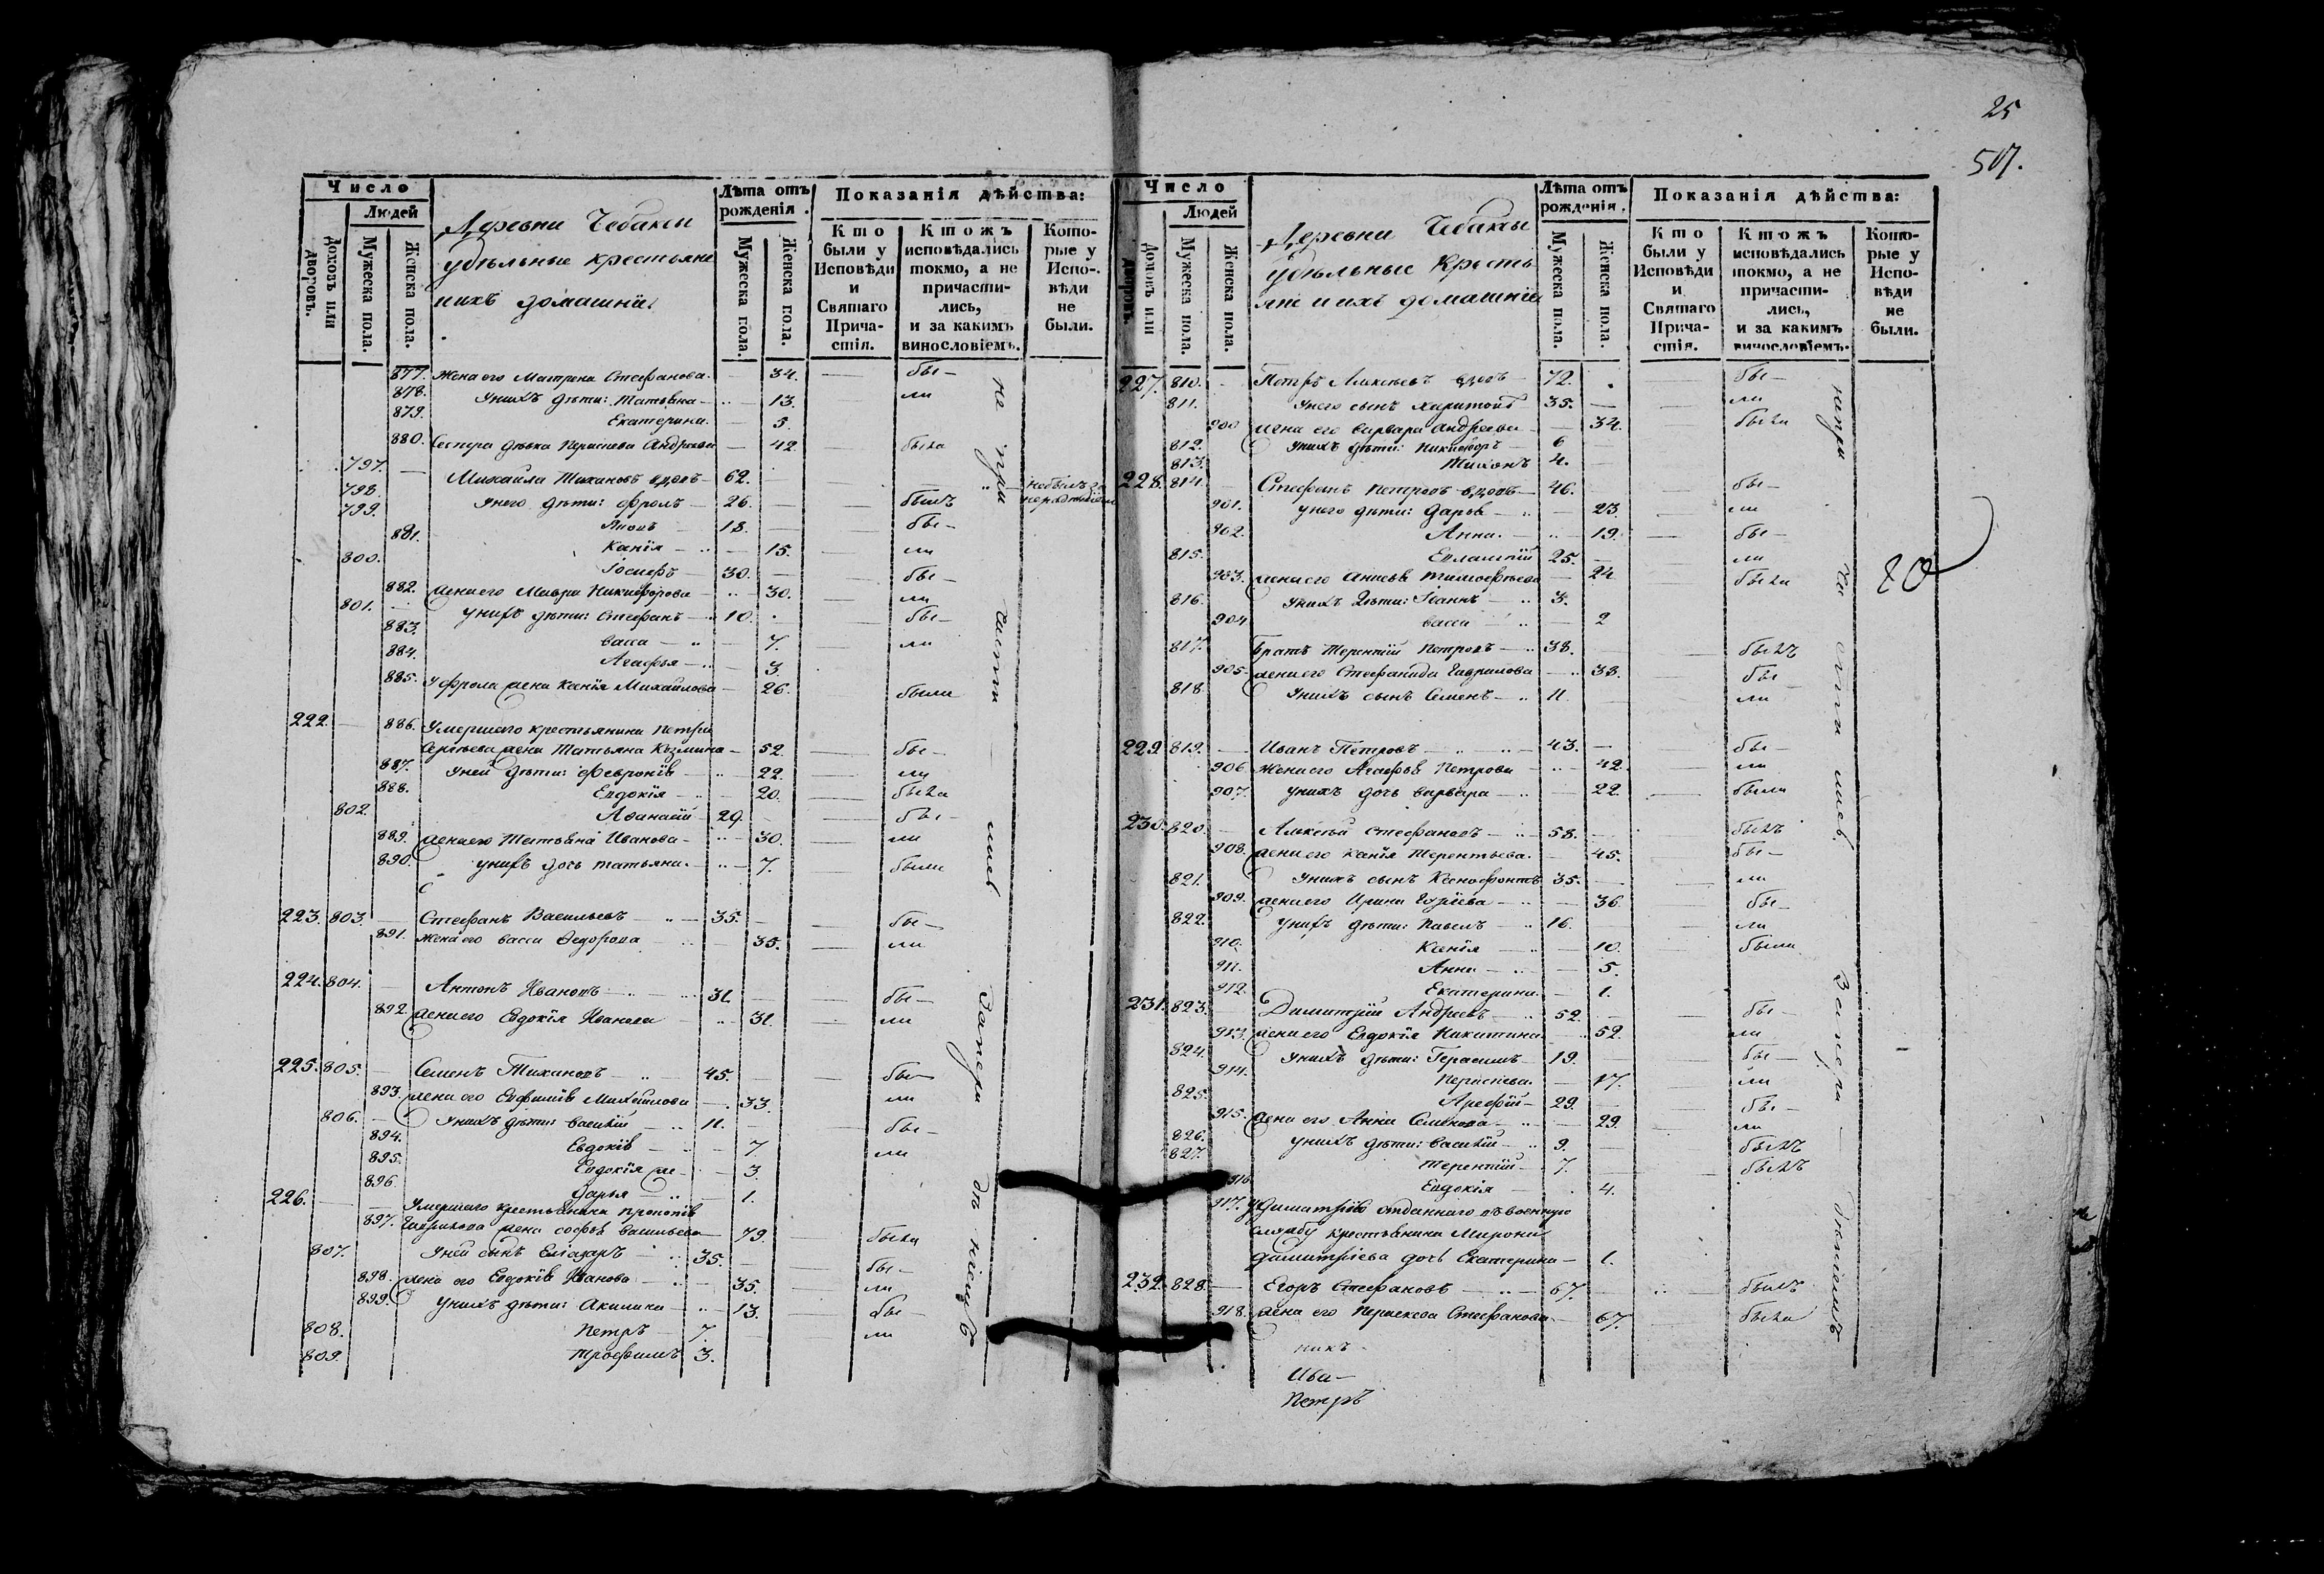 25
507.
Число
Людей
Домовъ или дворовъ.
Мужеска пола.
Женска пола.
Деревни Чебаксы
удѣльные крестьяне
и ихъ домашнія.
Лѣта отъ рожденія.
Мужеска пола.
Женска пола.
Показанія дѣйства:
Кто были у Исповѣди и Святаго Причастія.
Ктожъ исповѣдались токмо, а не причастились, и за какимъ винословіемъ.
Которые у Исповѣди не были.
877. Жена его Матрена Стефанова. — 34. — бы—
878. У нихъ дѣти: Татьяна — 13. — ли
879. Екатерина. — 5.
880. Сестра дѣвка Параскева Андреева — 42. — была
797. — Михаила Тихановъ вдовъ — 62.
798. У него дѣти: Фролъ — 26. — — былъ
799. Яковъ — 18. — — бы—
881. Ксенія — 15. — ли
800. Іосифъ — 30. — — бы—
882. Жена его Мавра Никифорова — 30. — ли
801. — У нихъ дѣти: Стефанъ — 10. — бы—
883. Васса — 7. — ли
884. Агафья — 3.
885. У Фрола жена Ксенія Михайлова — 26. — была
222. — 886. Умершаго крестьянина Петра
Сергѣева жена Татьяна Козмина — 52. — бы—
887. У ней дѣти: Феврониа — 22. — ли
888. Евдокія — 20. — была
802. Аѳанасій — 29. — бы—
889. Жена его Татьяна Иванова — 30. — ли
890. У нихъ дочь Татьяна. — 7. — была
223. 803. — Стефанъ Васильевъ — 35. — — бы—
891. Жена его Васса Ѳедорова — 35. — ли
224. 804. — Антонъ Ивановъ — 31. — бы—
892. Жена его Евдокія Иванова — 31. — ли
225. 805. — Семенъ Тихановъ — 45. — бы—
893. Жена его Евфимія Михайлова — 33. — ли
806. — У нихъ дѣти: Василій — 11. — бы—
894. Евдокія — 7. — ли
895. Евдокія м — 3.
896. Дарья — 1.
226. — Умершаго крестьянина Прокопія
897. Гаврилова жена Софья Васильева — 79. — была
807. У ней сынъ Елеазаръ — 35. — бы—
898. Жена его Евдокія Иванова — 35. — ли
899. У нихъ дѣти: Акилина — 13. — бы—
808. Петръ — 7. — ли
809. Трофимъ 3.
не при части лись
Число
Людей
Домовъ или дворовъ.
Мужеска пола.
Женска пола.
Деревни Чебаксы
Удѣльные Кресть
яне и ихъ домашніе
Лѣта отъ рожденія.
Мужеска пола.
Женска пола.
Показанія дѣйства:
Кто были у Исповѣди и Святаго Причастія.
Ктожъ исповѣдались токмо, а не причастились, и за какимъ винословіемъ.
Которые у Исповѣди не были.
227. 810. — Петръ Алексѣевъ вдовъ — 72. — бы—
811. У него сынъ Харитонъ — 35. — — ли
900. Жена его Варвара Андреева — 34. — была
812. У нихъ дѣти: Никифоръ — 6
813. Тихонъ — 4. —
228. 814. — Стефанъ Петровъ вдовъ — 46. — бы—
901. У него дѣти: Дарья — 23. — ли
902. Анна. — 19. — бы—
815. Евлампій 25. — — ли
903. Жена его Анисья Тимофѣева — 24 — была
816. У нихъ дѣти: Іоаннъ — 3.
904 Васса — 2
817. Братъ Терентій Петровъ — 38. — былъ
905. Жена его Стефанида Гаврилова — 38. — бы
818. У нихъ сынъ Семенъ — 11. — ли
229. 819. — Иванъ Петровъ — 43. — бы—
906 Жена его Агафья Петрова — 42. — ли
907. У нихъ дочь Варвара — 22. — была
230. 820. — Алексѣй Стефановъ — 58. — былъ
908. Жена его Ксенія Терентьева. — 45. — бы—
821. У нихъ сынъ Ксенофонтъ 35. — — ли
909. Жена его Ирина Гурьева — 36. — бы—
822. У нихъ дѣти: Павелъ — 16. — ли
910. Ксенія — 10. — была
911. Анна — 5.
912. Екатерина. — 1.
231. 823. — Димитрій Андреевъ — 52. — бы—
913. Жена его Евдокія Никитина — 52. — ли
824. У нихъ дѣти: Герасимъ — 19. — бы—
914. Параскева. — 17. — ли
825. Арефій — 29. — бы—
915. Жена его Анна Семенова — 29. — ли
826. У нихъ дѣти: Василій — 9. — былъ
827. Терентій — 7. — былъ
916. Евдокія — 4.
917. У Димитрія отданнаго въ военную
службу крестьянина Мирона
Димитріева дочь Екатерина — 1.
232. 828. — Егоръ Стефановъ — 67. — былъ
918. Жена его Параскева Стефанова — 67. — была
Ива—
Петръ
20